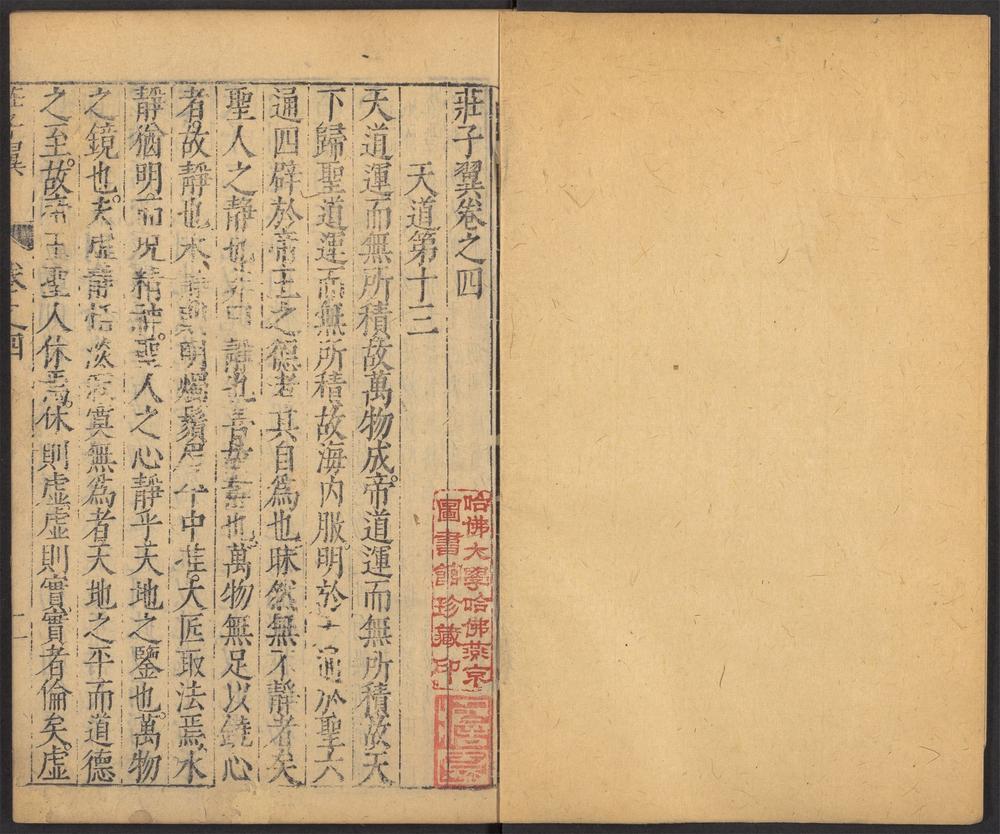 莊子翼卷之四
天道第十三
天道運而無所積故萬物成帝道運而無所積故天
下歸聖道運而無所積故海內服明於 通於聖六
通四辟於帝王之德者其自為也昧然無不靜者矣
聖人之靜也非曰靜也善故靜也萬物無足以鐃心
者故靜也水靜則明燭鬚眉平中准大匠取法焉水
靜猶明而況精神聖人之心靜乎天地之鑒也萬物
之鏡也夫虛靜恬淡寂寞無為者天地之平而道德
之至故帝王聖人休焉休則虛虛則實實者倫矣虛
莊子翼 卷之四 一
哈佛大學哈佛燕京
圖書館珍藏印